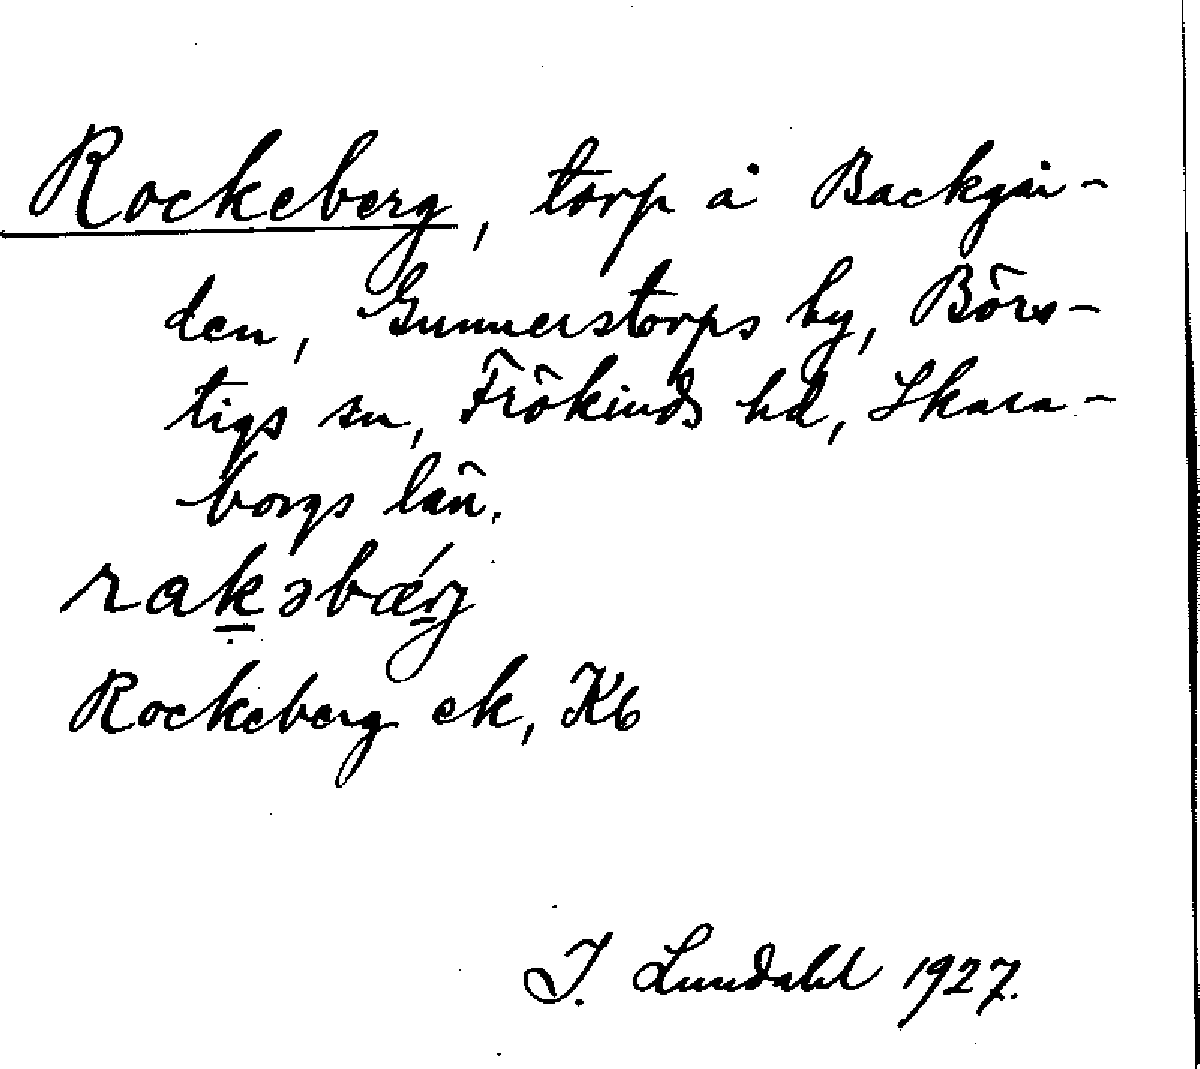 Rockeberg, torp å Backgår-
den, Gunnerstorps by, Börs-
tigs sn, Frökinds hd, Skara-
borgs län.
rakəbǽrj
Rockeberg ek, Kb
I. Lundahl 1927.